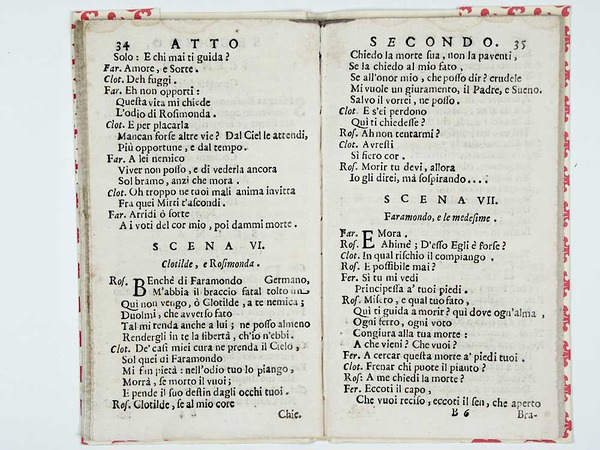 34 ATTO
Solo: E chi mai ti guida?
Far. Amore, e Sorte.
Clot. Deh fuggi.
Far. Eh non opporti:
Questa vita mi chiede
L'odio di Rosimonda.
Clot. E per placarla
Mancan forse altre vie? Dal Ciel le attendi,
Più opportune, e dal tempo.
Far. A lei nemico
Viver non posso, e di vederla ancora
Sol bramo, anzi che mora.
Clot. Oh troppo ne tuoi mali anima invitta
Fra quei Mirti t'ascondi.
Far. Arridi ò sorte
A i voti del cor mio, poi dammi morte.
SCENA VI.
Clotilde, e Rosimonda.
Ros. Benché di Faramondo Germano,
M'abbia il braccio fatal tolto un
Qui non vengo, ò Clotilde, a te nemica;
Duolmi, che avverso fato
Tal mi renda anche a lui; ne posso almeno
Rendergli in te la libertà, ch'io n'ebbi.
Clot. De' casi miei cura ne prenda il Cielo,
Sol quei di Faramondo
Mi fan pietà: nell'odio tuo lo piango,
Morrà, se morto il vuoi;
E pende il suo destin dagli occhi tuoi.
Ros. Clotilde, se al mio core
Chie-
SECONDO. 35
Chiedo la morte sua, non la paventi,
Se la chiedo al mio fato,
Se all'onor mio, che posso dir? crudele
Mi vuole un giuramento, il Padre, e Sueno.
Salvo il vorrei, ne posso.
Clot. E s'ei perdono
Quì ti chiedesse?
Ros. Ah non tentarmi?
Clot. Avresti
Sì fiero cor.
Ros. Morir tu devi, allora
Io gli direi, mà sospirando....
SCENA VII.
Faramondo, e le medesime.
Far. E Mora.
Ros. Ahimè; D'esso Egli è forse?
Clot. In qual rischio il compiango.
Ros. E possibile mai?
Fer. Sì tu mi vedi
Principessa a' tuoi piedi.
Ros. Misero, e qual tuo fato,
Qui ti guida a morir? quì dove ogn'alma,
Ogni ferro, ogni voto
Congiura alla tua morte:
A che vieni? Che vuoi?
Fer. A cercar questa morte a' piedi tuoi.
Clot. Frenar chi puote il pianto?
Ros: A me chiedi la morte?
Fer. Eccoti il capo,
Che vuoi reciso, eccoti il sen, che aperto
B 6 Bra-